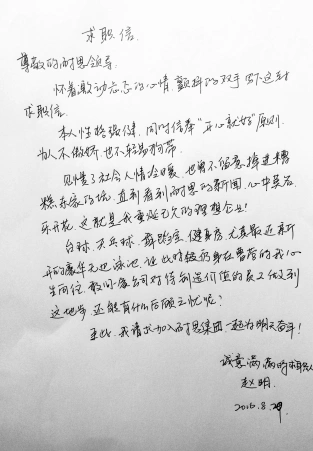 求职信
尊敬的耐思领导:
怀着激动忐忑的心情,颤抖的双手写下这封
求职信.
本人性格强健,同时信奉"开心就好"原则,
为人不做娇,也不轻易抱怨.
见惯了社会人情冷暖,也曾不留意掉进糟
糕,直到看到耐思的新闻,心中莫名
乐开花,这就是我垂涎已久的理想企业!
台球,乒乓球,舞蹈室,健身房,尤其最近新
开的豪华无边泳池,让此时仍身在曹营的我心
生向往,敢问一家公司对待创造价值的员工做到
这地步,还能有什么后顾之忧呢?
至此,我请求加入耐思集团,一起为明天奋斗!
诚意满满的求职人
赵明
2016.8.29